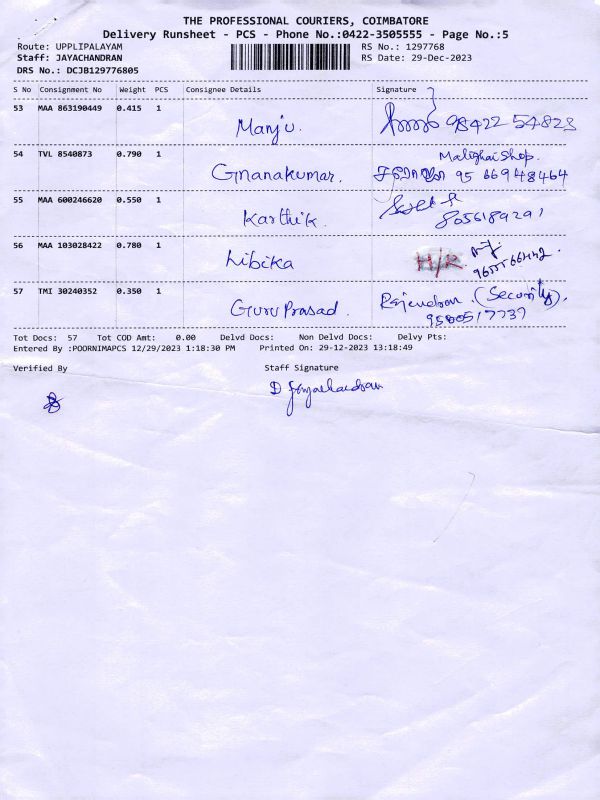 THE PROFESSIONAL COURIERS, COIMBATORE
Delivery Runsheet - PCS - Phone No.:0422-3505555 - Page No.:5
Route: UPPLIPALAYAM RS No.: 1297768
Staff: JAYACHANDRAN RS Date: 29-Dec-2023
DRS No.: DCJB129776805
S No Consignment No Weight PCS Consignee Details Signature
53 MAA 863190449 0.415 1
Manju. 98422 54823
54 TVL 8540873 0.790 1 Malighai Shop.
Gnanakumar. 95 66948464
55 MAA 600246620 0.550 1
Karthik. 8056189291
56 MAA 103028422 0.780 1
Libika H/R
57 TMI 30240352 0.350 1
Guru Prasad. Rajendran (Security).
9500517737
Tot Docs: 57 Tot COD Amt: 0.00 Delvd Docs: Non Delvd Docs: Delvy Pts:
Entered By :POORNIMAPCS 12/29/2023 1:18:30 PM Printed On: 29-12-2023 13:18:49
Verified By Staff Signature
D Jayachandran